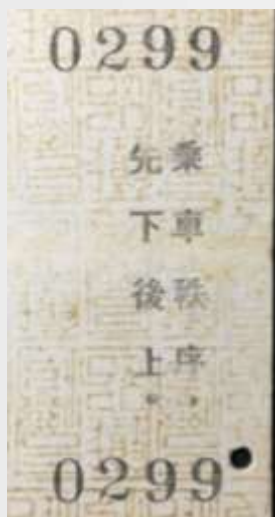 0299
乘車秩序，
先下後上。
0299